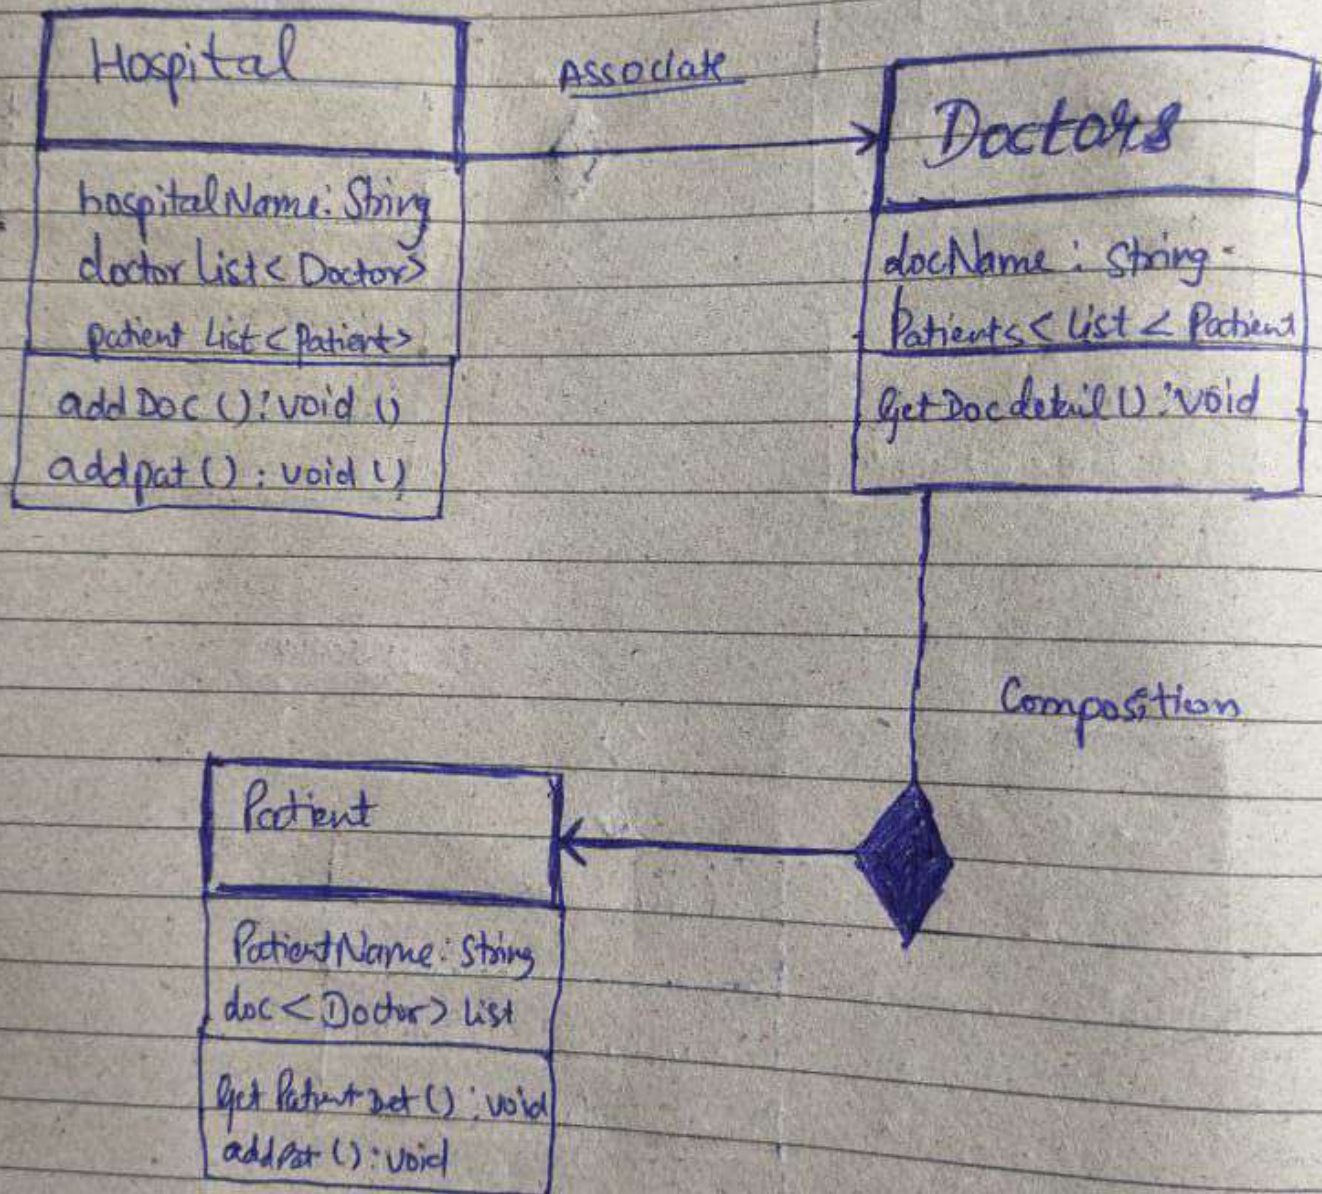 Hospital
hospitalName: String
doctor List<Doctor>
patient List<Patient>
addDoc (): void ()
addpat () : void ()
Associate
Doctors
docName : String
Patients < List < Patient
getDocdetail() : void
Composition
Patient
PatientName: String
doc <Doctor> List
get Patient Det () : void
addPat () : void